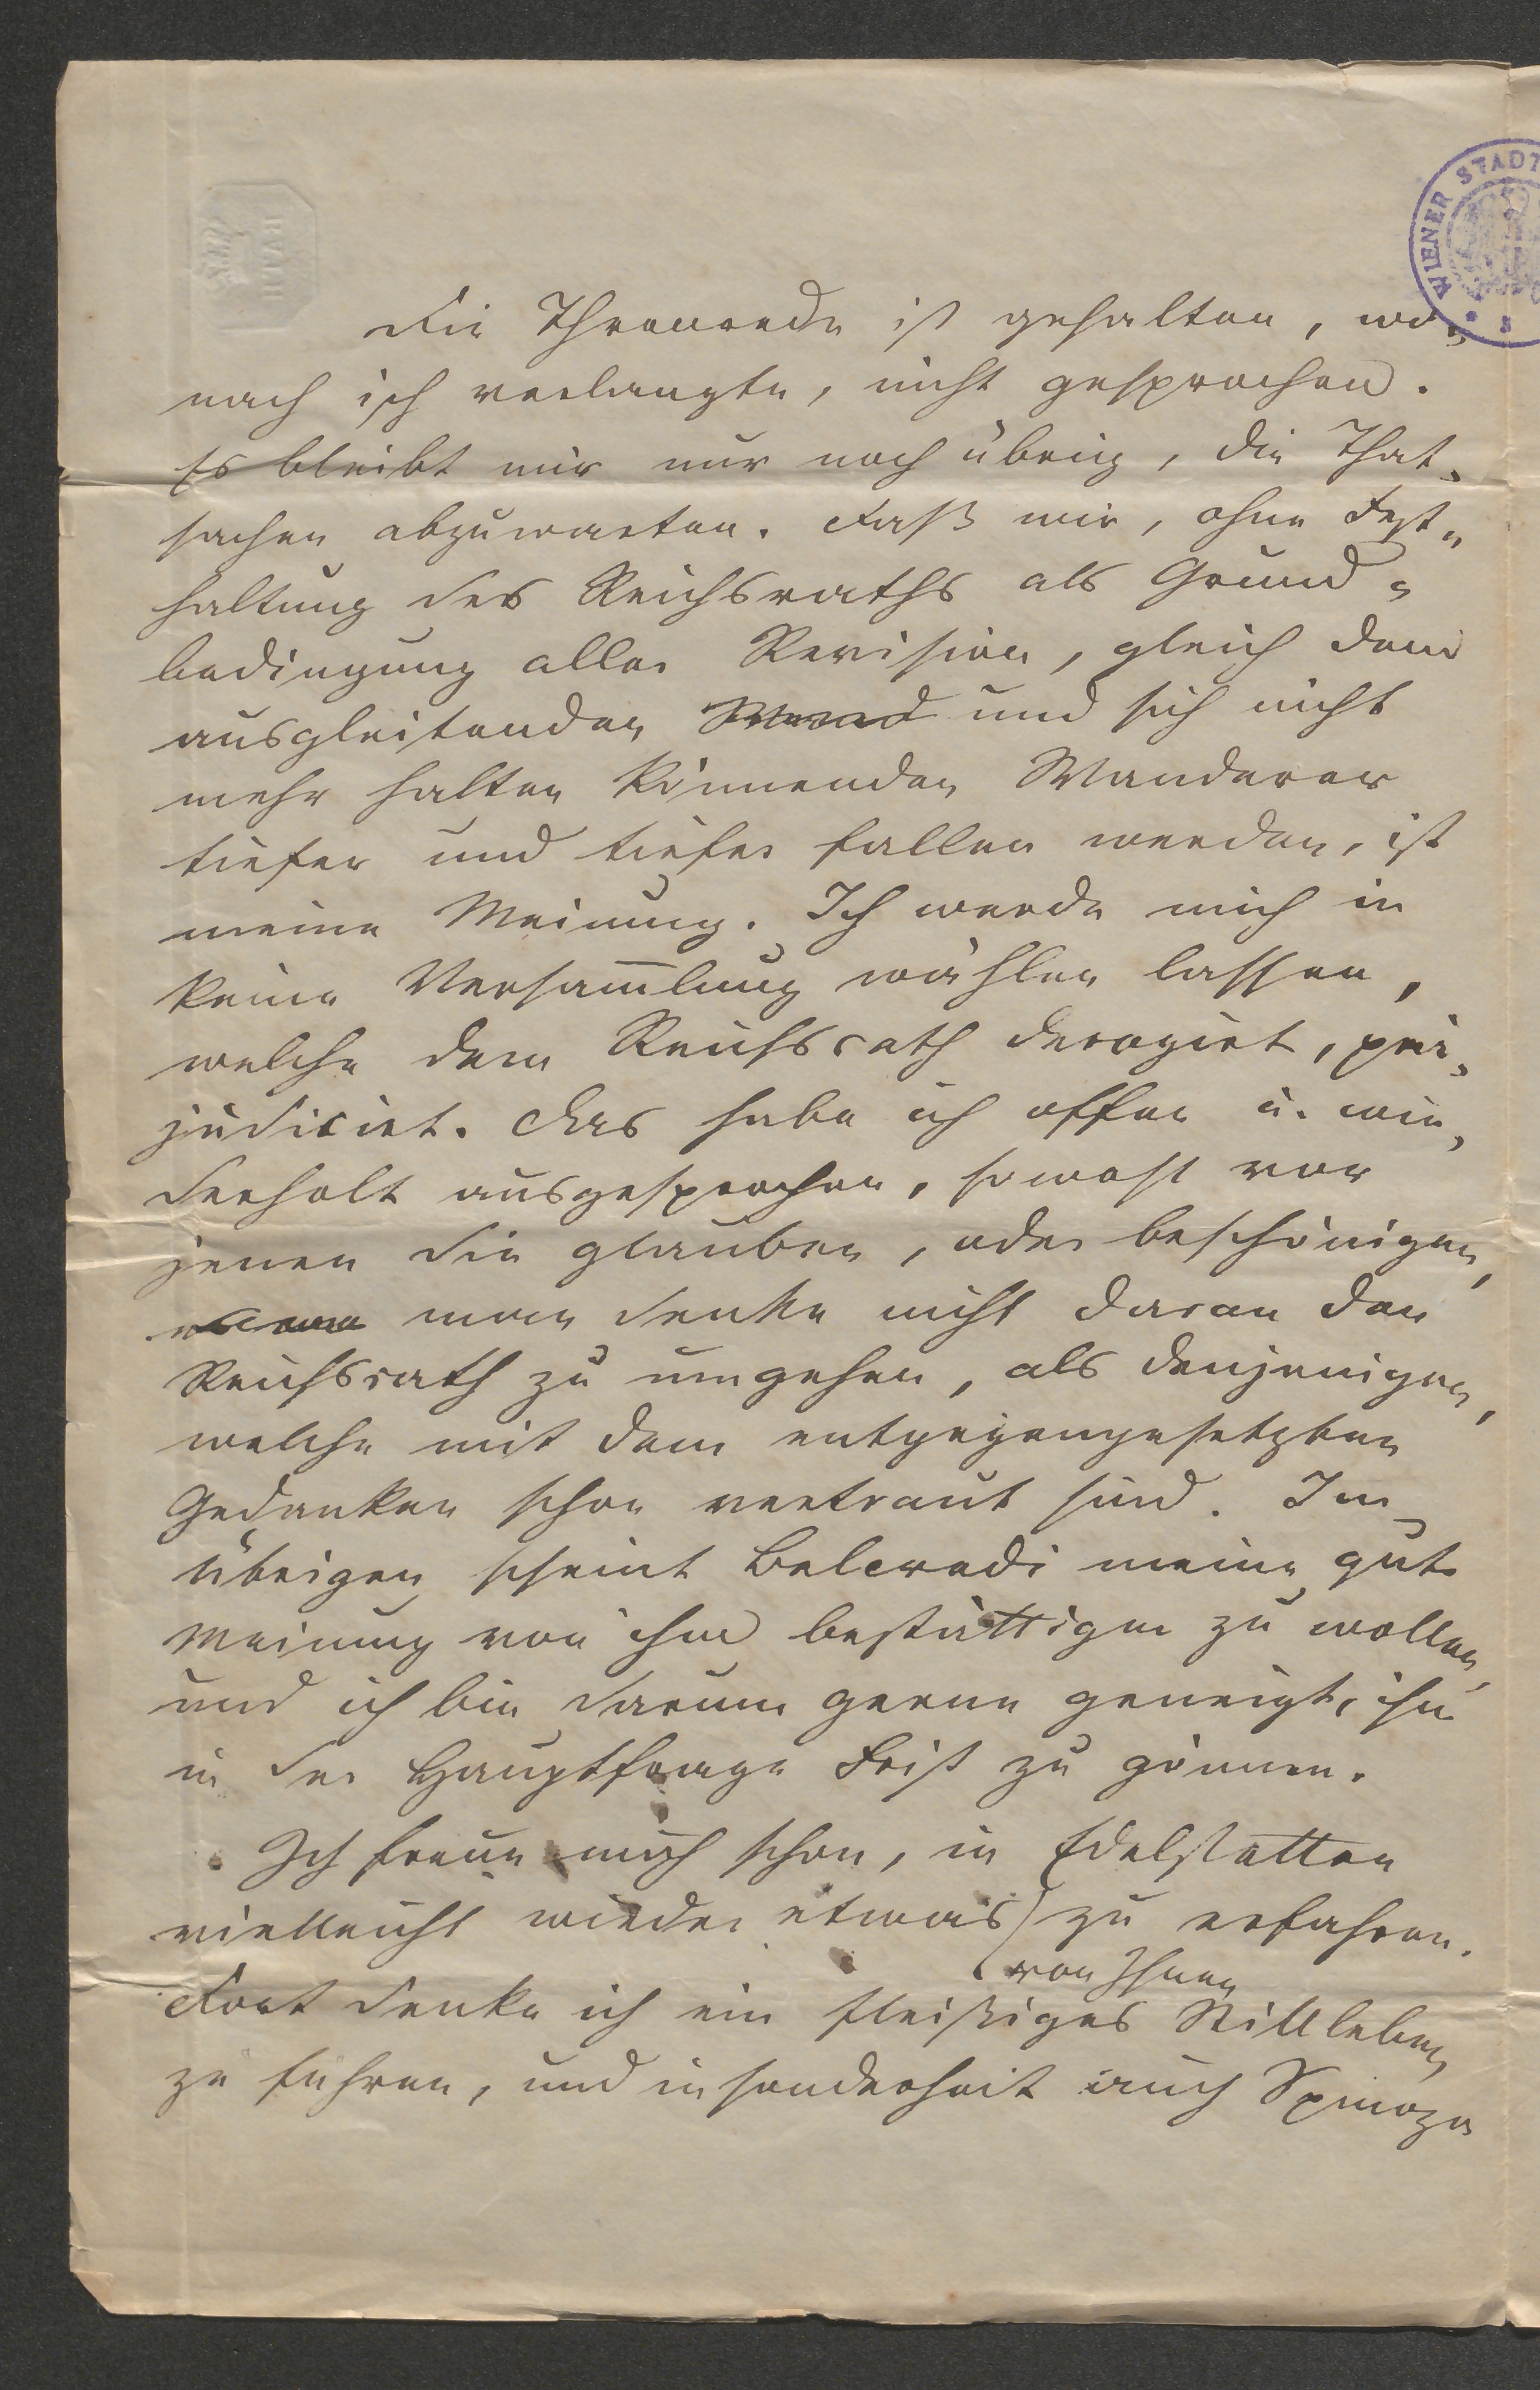 WIENER STADT
Die Thronrede ist gehalten, wo-
nach ich verlangte, nicht gesprochen.
Es bleibt mir nur noch übrig, die That-
sachen abzuwarten. Daß wir, ohne Fest-
haltung des Reichsraths als Grund-
bedingung aller Revision, gleich dem
ausgleitenden und sich nicht
mehr halten könnenden Wanderer
tiefer und tiefer fallen werden, ist
meine Meinung. Ich werde mich in
keine Versammlung wählen lassen,
welche dem Reichsrath derogirt, prä-
judicirt. Das habe ich offen u. wie-
derholt ausgesprochen, sowohl vor
jenen die glauben, oder beschönigen,
man denke nicht daran den
Reichsrath zu umgehen, als denjenigen,
welche mit dem entgegengesetzten
Gedanken schon vertraut sind. Im
übrigen scheint Belcredi meine gute
Meinung von ihm bestättigen zu wollen,
und ich bin darum gerne geneigt, ihm
in der Hauptfrage Frist zu gönnen.
Ich freue mich schon, in Edelstetten
vielleicht wieder etwas zu erfahren.
von Ihnen
Dort denke ich ein fleißiges Stillleben
zu führen, und insonderheit auch Spinoza